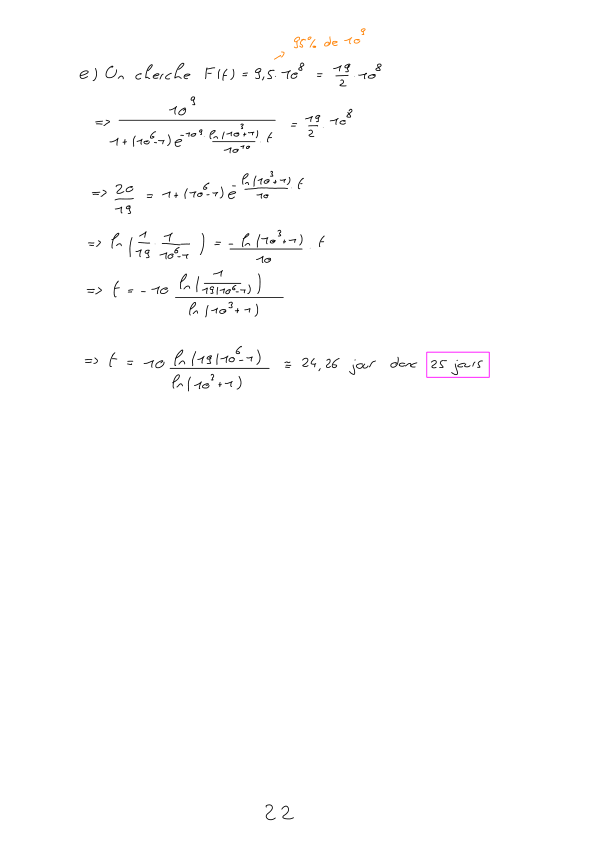 95% de 10⁹
e) On cherche F(t) = 9,5·10⁸ = 19/2 · 10⁸
=> 10⁹ / (1+(10⁶-1)e^(-10⁹ · ln(10³+1)/10¹⁰ · t)) = 19/2 · 10⁸
=> 20/19 = 1+(10⁶-1)e^(-ln(10³+1)/10 t)
=> ln(1/19 · 1/(10⁶-1)) = -ln(10³+1)/10 t
=> t = -10 ln(1/(19(10⁶-1))) / ln(10³+1)
=> t = 10 ln(19(10⁶-1) / ln(10³+1) ≅ 24,26 jour donc 25 jours
22